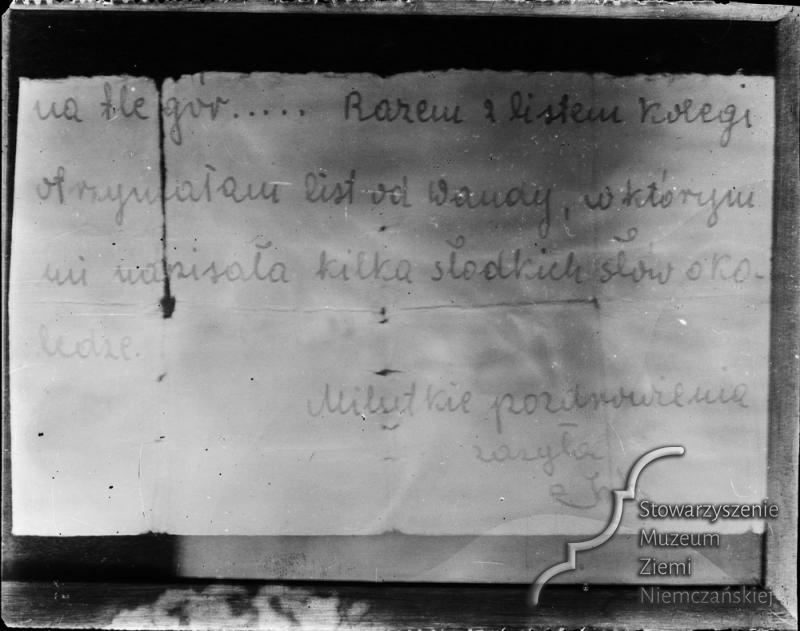 na tle gór..... Razem z listem kolegi
otrzymałam list od Wandy, w którym
mi napisała kilka słodkich słów o ko-
ledze.
Milutkie pozdrowienia
zasyła
Stowarzyszenie
Muzeum
Ziemi
Niemczańskiej